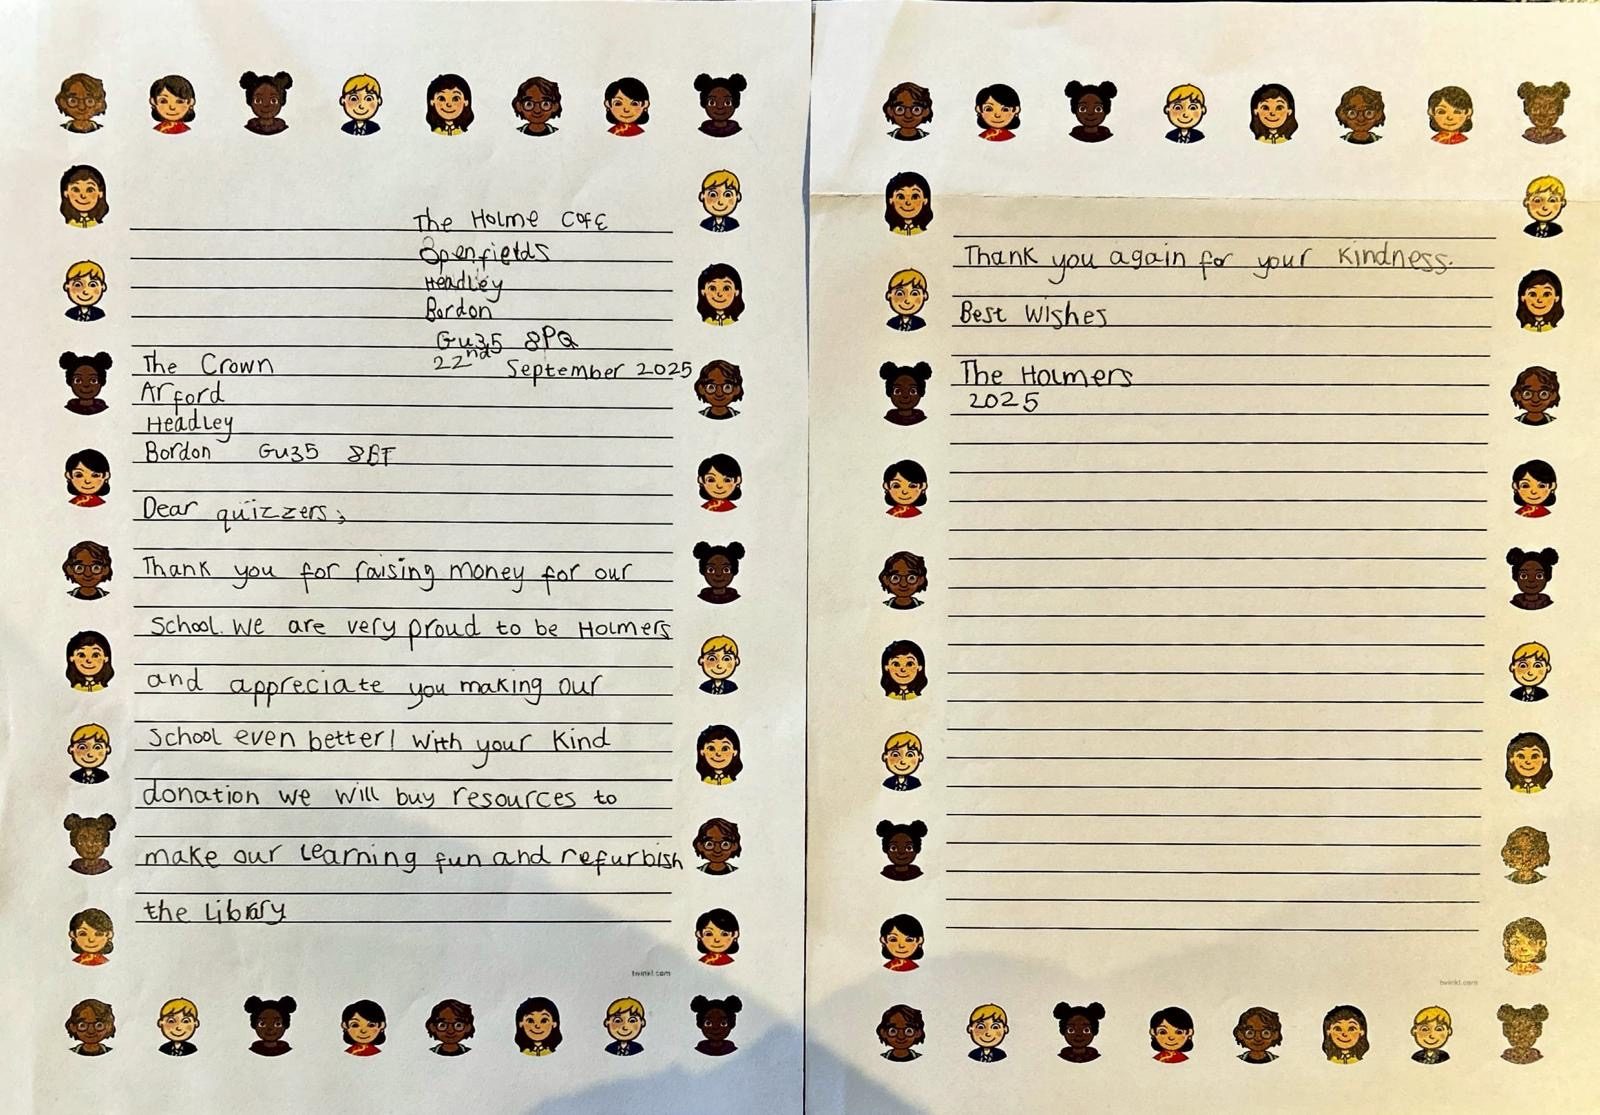 The Holme CofE
Openfields
Headley
Bordon
Gu35 8PQ
22nd September 2025
The Crown
Arford
Headley
Bordon Gu35 8BT
Dear quizzers,
Thank you for raising money for our
School. We are very proud to be Holmers
and appreciate you making our
School even better! With your Kind
donation we will buy resources to
make our learning fun and refurbish
the Library
twinkl.com
Thank you again for your Kindness.
Best Wishes
The Holmers
2025
twinkl.com